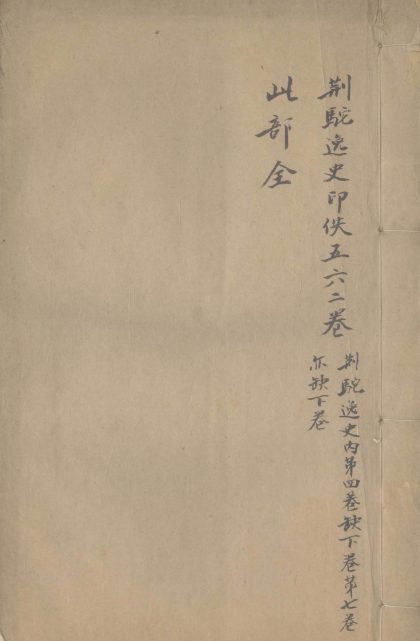 荆駝逸史印佚五六二卷
荆駝逸史内第四卷缺下卷第七卷
亦缺下卷
此部全